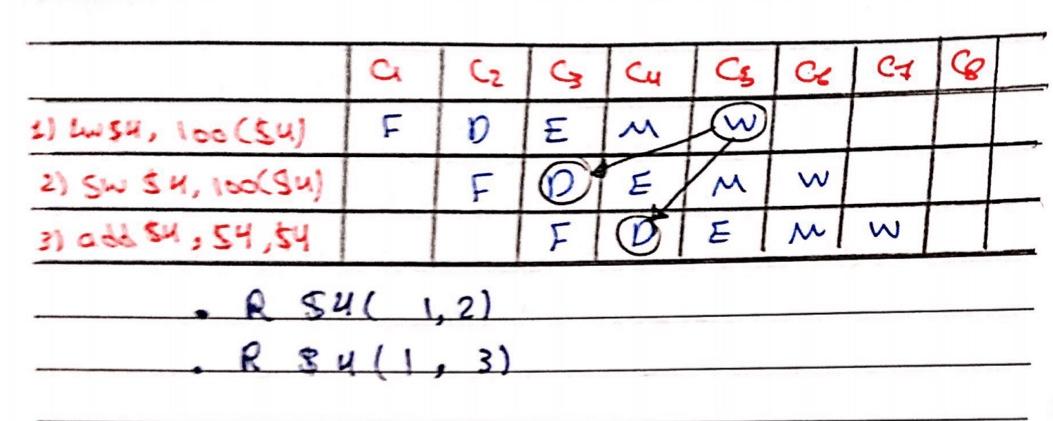 C1 C2 C3 C4 C5 C6 C7 C8
1) lw $4, 100($4) F D E M W
2) sw $4, 100($4) F D E M W
3) add $4, $4, $4 F D E M W
. R $4( 1,2)
. R $4(1, 3)